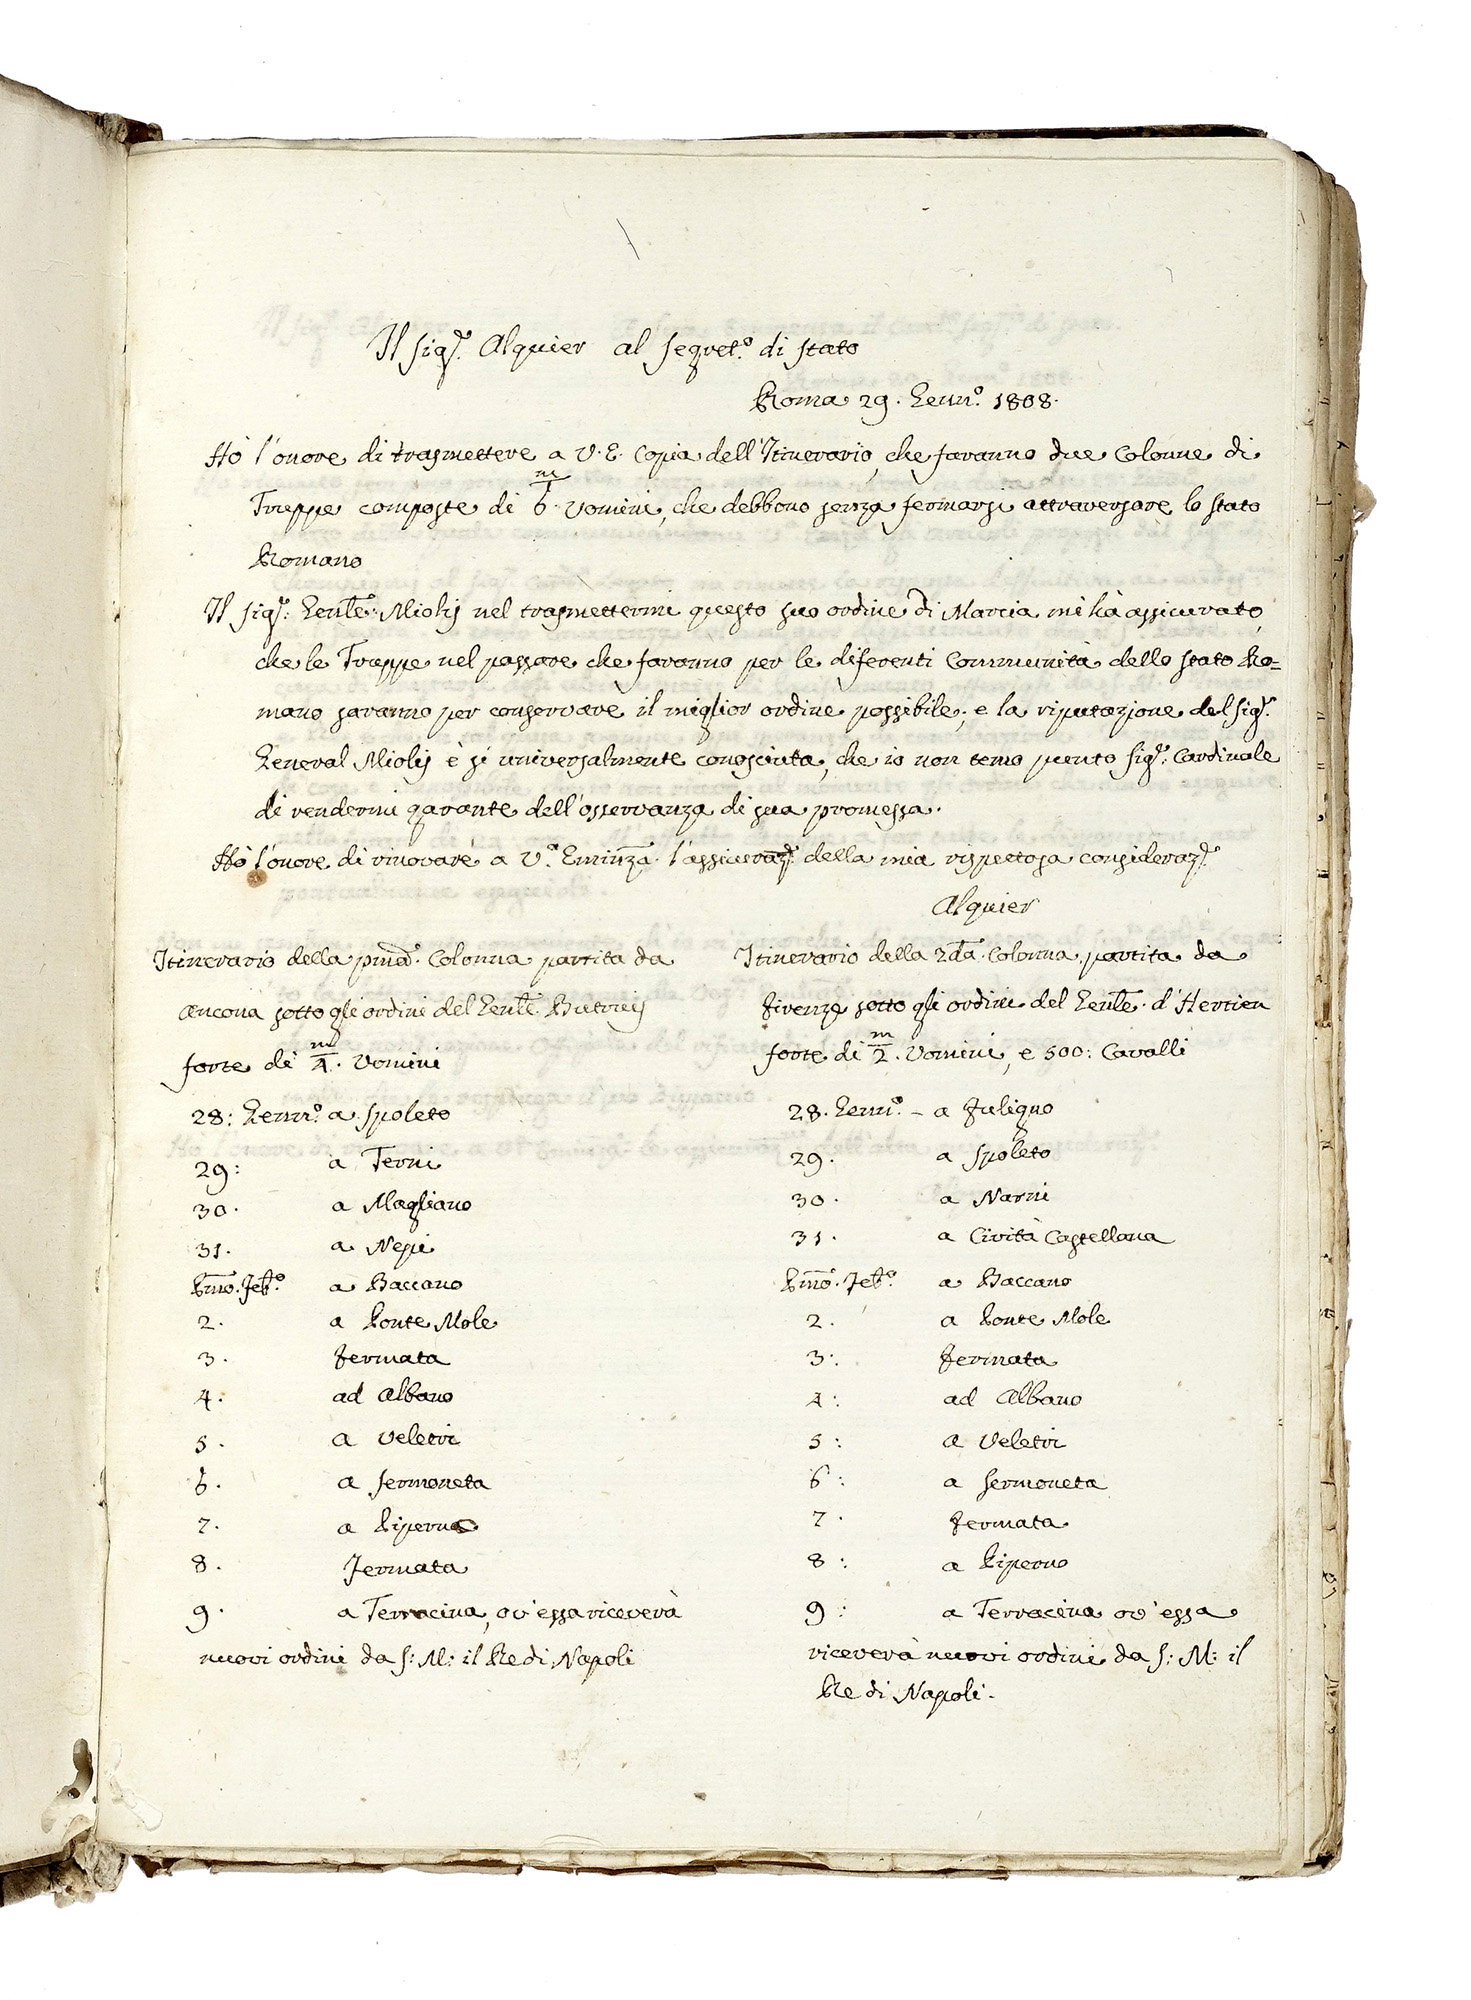 Il Sig.r Alquier al Segret.o di Stato
Roma 29. Genn.o 1808.
Hò l'onore di trasmettere a V. E. Copia dell'Itinerario, che faranno due Colonne di
Truppe composte di 6.m Uomini, che debbono senza fermarsi attraversare lo Stato
Romano
Il Sig.r: Gen̄le: Miolis nel trasmettermi questo suo ordine di Marcia mi hà assicurato,
che le Truppe nel passare che faranno per le diferenti Communità dello Stato Ro=
mano saranno per conservare il miglior ordine possibile; e la riputazione del Sig.r
General Miolis è si universalmente conosciuta, che io non temo punto Sig.r: Cardinale
di rendermi garante dell'osservanza di sua promessa.
Hò l'onore di rinovare a V.a Emin̄za l'assicuraz.e della mia rispettosa consideraz.e
Alquier
Itinerario della pm̄a. Colonna partita da
Ancona sotto gli ordini del Gen̄le.
forte di 4.m Uomini
28: Genn.o a Spoleto
29: a Terni
30. a Magliano
31. a Nepi
Pm̄o. Feb.o a Baccano
2. a Ponte Mole
3. Fermata
4. ad Albano
5. a Veletri
6. a Sermoneta
7. a Piperno
8. Fermata
9. a Terracina, ov'essa riceverà
nuovi ordini da S: M: il Re di Napoli
Itinerario della 2d̄a. Colonna partita da
Firenze sotto gli ordini del Gen̄le. d'
forte di 2.m Uomini, e 500: Cavalli
28. Genn.o - a Fuligno
29. a Spoleto
30. a Narni
31. a Cività Castellana
Pm̄o. Feb.o a Baccano
2. a Ponte Mole
3: Fermata
4: ad Albano
5: a Veletri
6: a Sermoneta
7. Fermata
8: a Piperno
9: a Terracina ov'essa
riceverà nuovi ordini da S: M: il
Re di Napoli.